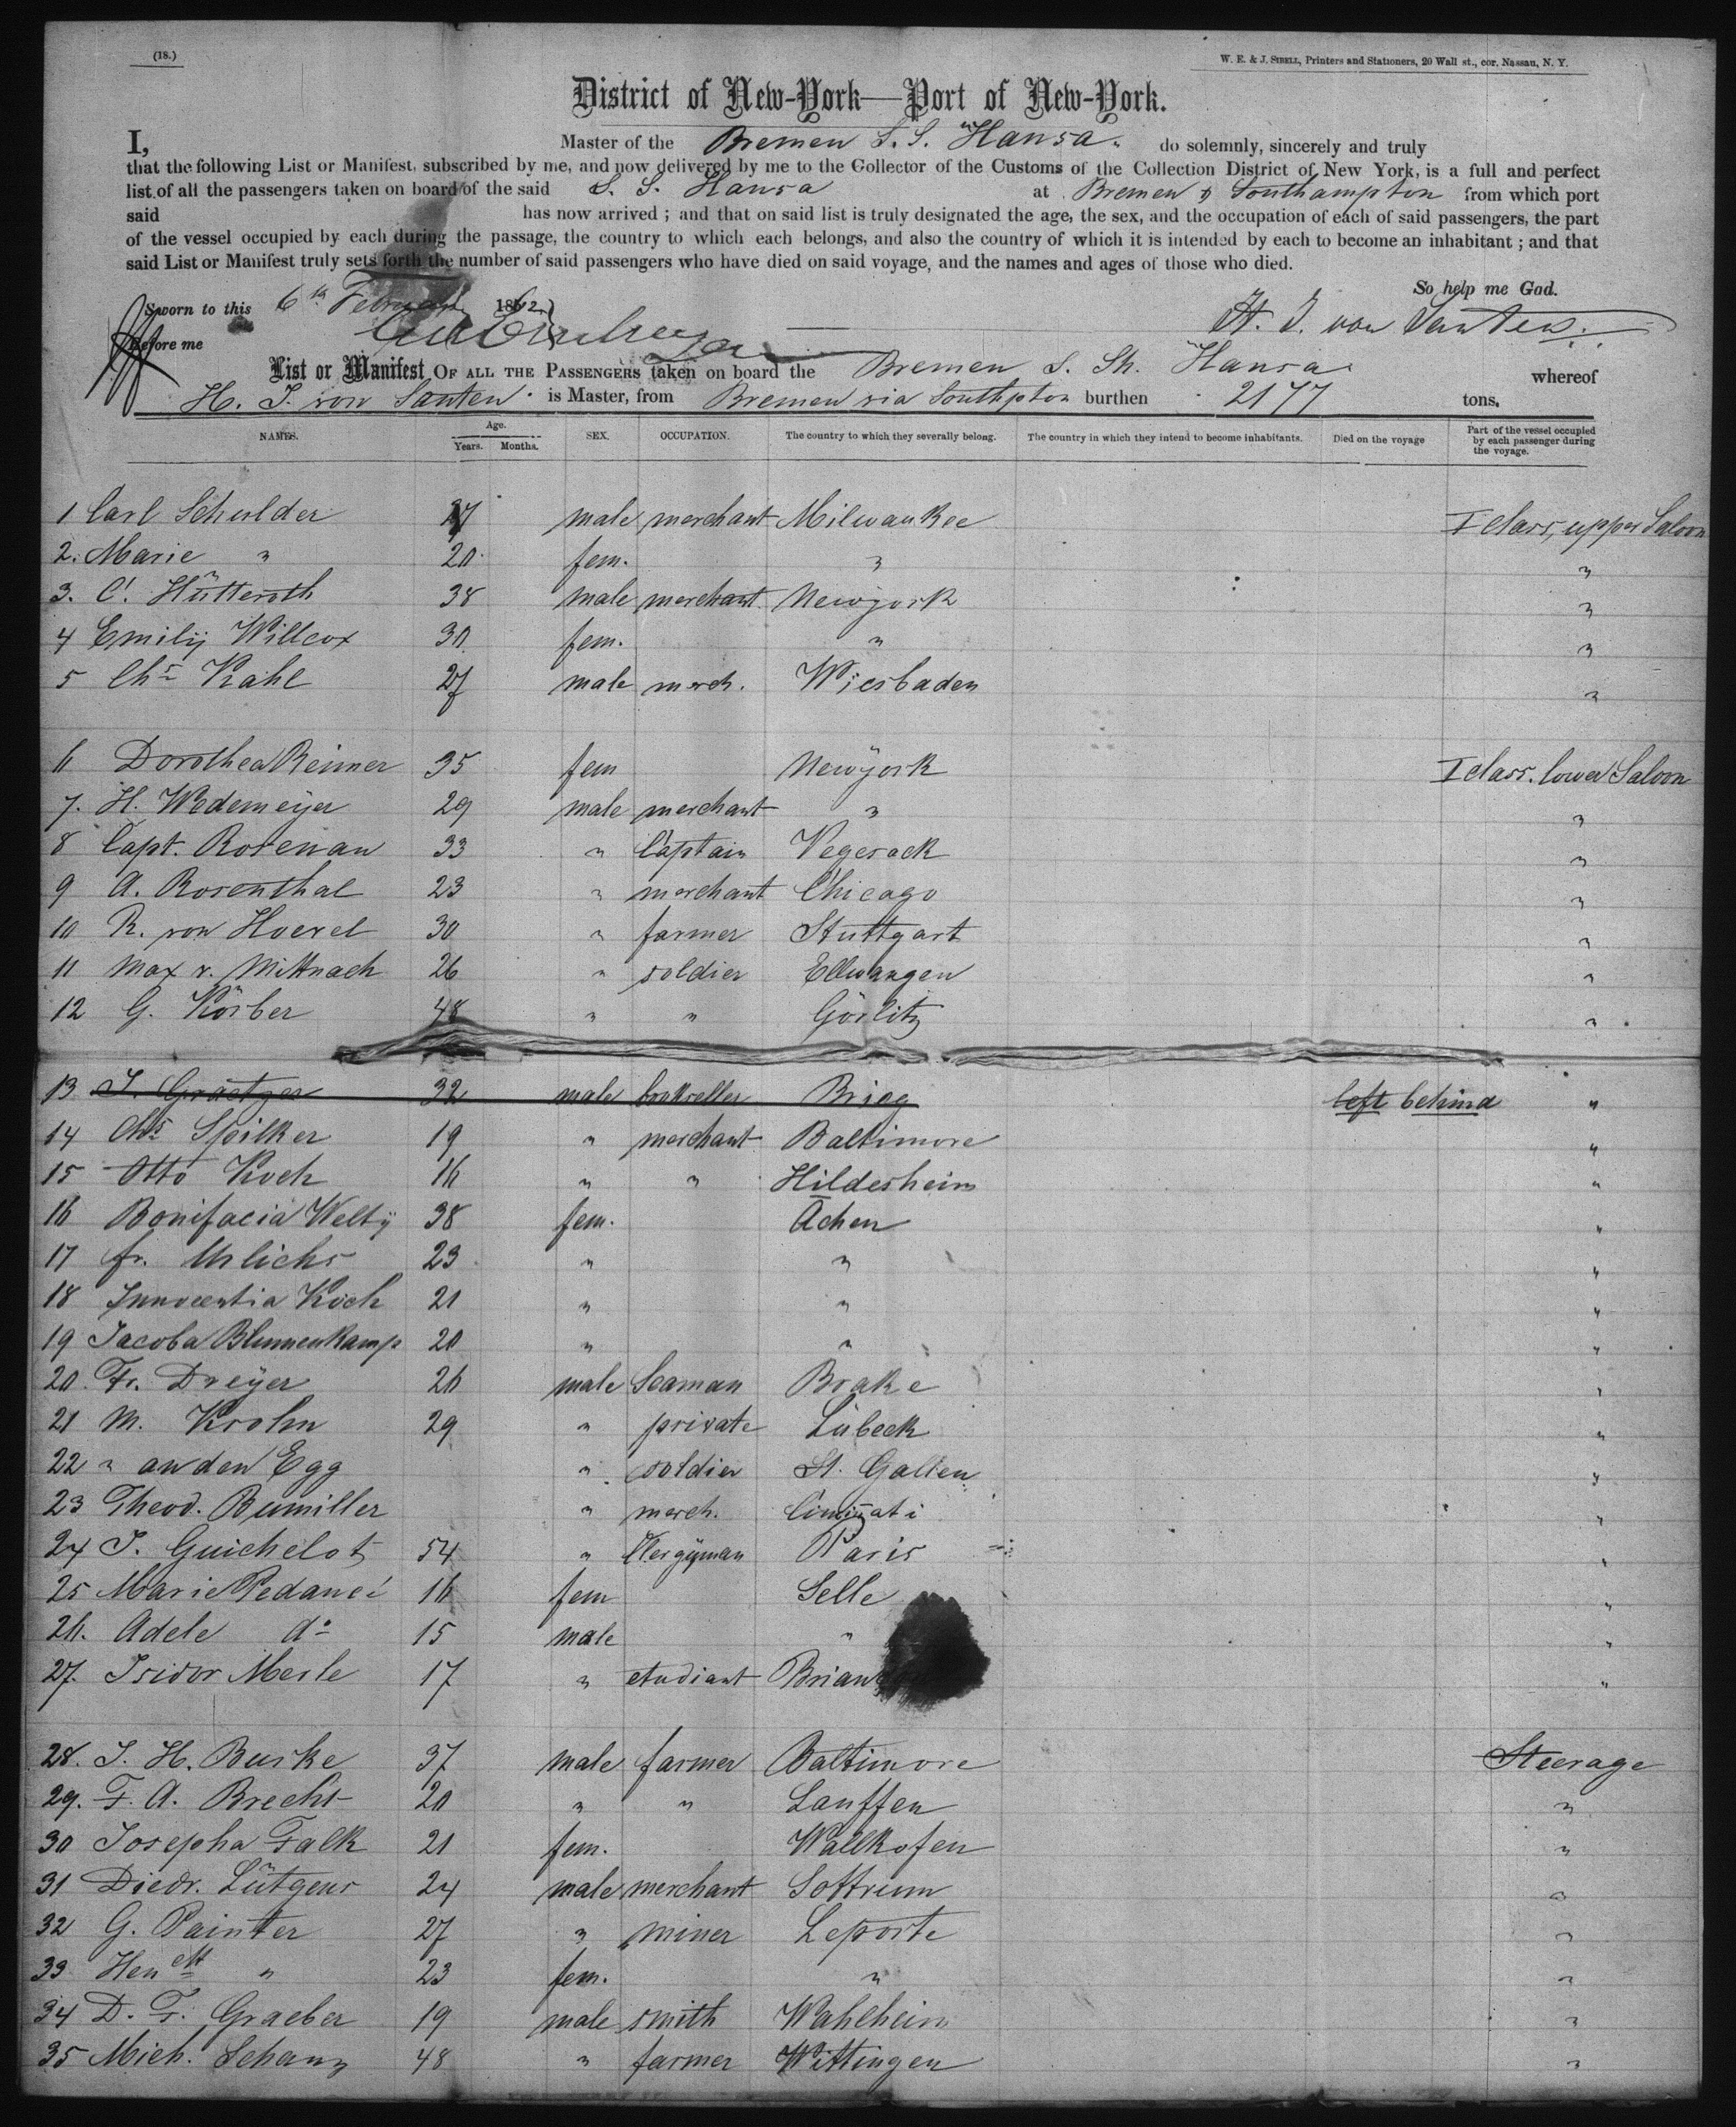 (18.)
W. E. & J. SIBELL, Printers and Stationers, 20 Wall st., cor. Nassau, N. Y.
District of New-York—Port of New-York.
I, Master of the Bremen S. S. "Hansa" do solemnly, sincerely and truly
that the following List or Manifest, subscribed by me, and now delivered by me to the Collector of the Customs of the Collection District of New York, is a full and perfect
list of all the passengers taken on board of the said S. S. Hansa at Bremen & Southampton from which port
said has now arrived ; and that on said list is truly designated the age, the sex, and the occupation of each of said passengers, the part
of the vessel occupied by each during the passage, the country to which each belongs, and also the country of which it is intended by each to become an inhabitant ; and that
said List or Manifest truly sets forth the number of said passengers who have died on said voyage, and the names and ages of those who died.
So help me God.
Sworn to this 6th February 1862
H. J. von Santen.
Before me
List or Manifest OF ALL THE PASSENGERS taken on board the Bremen S. Sh. "Hansa" whereof
H. J. von Santen is Master, from Bremen via Southpton burthen 2177 tons.
NAMES. Age. Years. Months. SEX. OCCUPATION. The country to which they severally belong. The country in which they intend to become inhabitants. Died on the voyage Part of the vessel occupied by each passenger during the voyage.
1 Carl Schulder 27 male merchant Milwaukee I class, upper Saloon
2. Marie " 20 fem. " "
3. C. Hütteroth 38 male merchant Newyork "
4 Emily Willcox 30 fem. " "
5 Chs Kahl 27 male merch. Wiesbaden "
6 Dorothea Reimer 35 fem Newyork I class. lower Saloon
7. H. Wedemeyer 29 male merchant " "
8 Capt. Rosenau 33 " Captain Vegesack "
9 A. Rosenthal 23 " merchant Chicago "
10 R. von Hoevel 30 " farmer Stuttgart "
11 Max v. Mittnach 26 " soldier Ellwangen "
12 G. Körber 48 " " Görlitz "
13 J. Graetzer 32 male bookseller Brieg left behind "
14 Chs Spilker 19 " merchant Baltimore "
15 Otto Koch 16 " " Hildesheim "
16 Bonifacia Welty 38 fem. Achen "
17 fr. Uhlichs 23 " " "
18 Innocentia Koch 21 " " "
19 Jacoba Blumenkamp 20 " " "
20. Fr. Dreyer 26 male Seaman Brake "
21 M. Krohn 29 " private Lübeck "
22 " an den Egg " soldier St. Gallen "
23 Theod. Bumiller " merch. Cincinati "
24 J. Guichelot 54 " Clergyman Paris "
25 Marie Pedane 16 fem Selle "
26. Adele do 15 male " "
27. Isidor Merle 17 " etudiant "
28. J. H. Buske 37 male farmer Baltimore Steerage
29. F. A. Brecht 20 " " Lauffen "
30 Josepha Falk 21 fem. Wallkofen "
31 Diedr. Lütgens 24 male merchant Sottrum "
32 G. Painter 27 " miner Leporte "
33 Hentt " 23 fem. " "
34 D. F. Graeber 19 male smith Wahlheim "
35 Mich. Schanz 48 " farmer Wittingen "